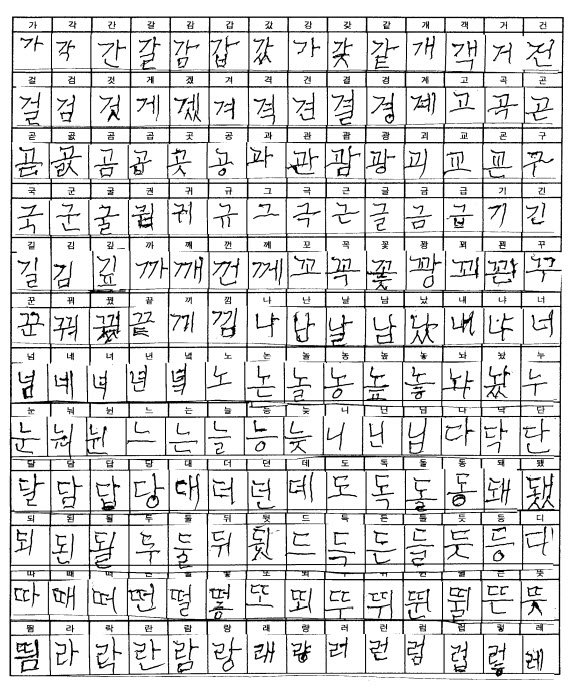 가 각 간 갈 감 갑 갔 강 갖 같 개 객 거 건
가 각 간 갈 감 갑 갔 가 갖 같 개 객 거 전
걸 검 것 게 겠 겨 격 견 결 경 계 고 곡 곤
걸 검 것 게 겠 겨 격 견 결 경 계 고 곡 곤
곧 곰 곱 곳 공 과 관 광 괴 교 구
곧 곰 곱 곳 공 과 관 괌 광 괴 교 구
국 군 굴 권 귀 규 그 극 근 글 금 급 기 긴
국 군 굴 귀 규 그 극 근 글 금 급 기 긴
길 김 깊 까 깨 껀 께 꼬 꼭 꽃 꽝 꾀 꾄 꾸
길 김 깊 까 깨 껀 께 꼬 꼭 꽃 꽝 꾀 꾄 꾸
꾼 꿔 꿨 끝 끼 낌 나 난 날 남 났 내 냐 너
꾼 꿔 꿨 끝 끼 낌 나 난 날 남 났 내 냐 너
넘 네 녀 년 녘 노 논 놀 농 높 놓 놔 놨 누
넘 네 녀 년 녘 노 논 놀 농 높 놓 놔 놨 누
눈 눠 뉜 느 는 늘 능 늦 니 닌 님 다 닥 단
눈 눠 뉜 느 는 늘 능 늦 니 닌 님 다 닥 단
달 담 답 당 대 더 던 데 도 독 돌 동 돼 됐
달 담 답 당 대 더 던 데 도 독 돌 동 돼 됐
되 된 될 두 둘 뒤 뒀 드 득 든 들 듯 등 디
되 된 될 두 둘 뒤 뒀 드 득 든 들 듯 등 디
따 때 떠 뜬 뜻
따 때 떠 떤 떨 똥 또 뙤 뚜 뛰 뛴 뜬 뜻
띔 라 락 란 람 랑 래 량 러 런 럼 럽 렇 레
띔 라 락 란 람 랑 래 량 러 런 럼 럽 렇 레